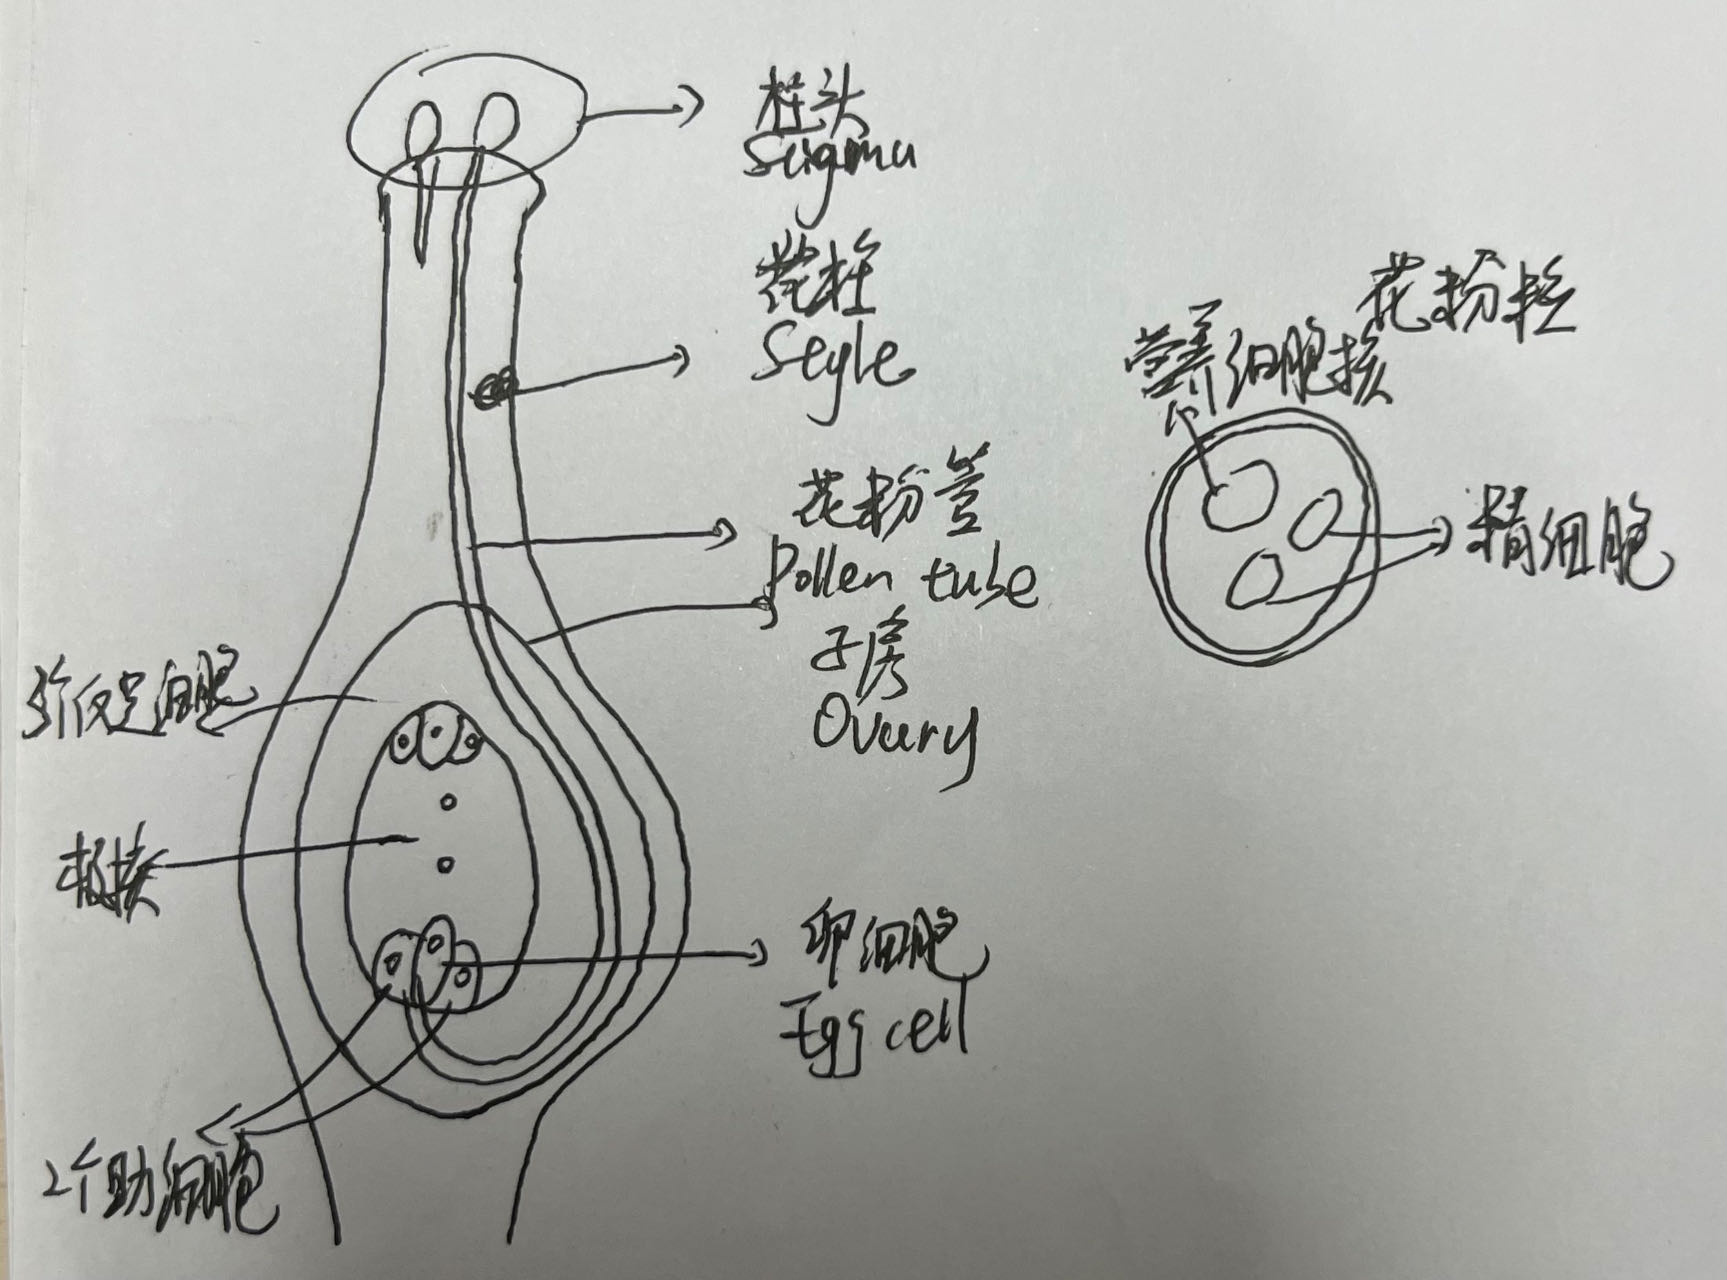 柱头
Stigma
花柱
Style
花粉管
Pollen tube
子房
Ovary
3个反足细胞
极核
卵细胞
Egg cell
2个助细胞
花粉粒
营养细胞核
精细胞